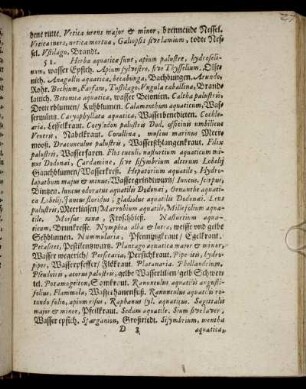 dene rutte. Vrtica urens major & minor, brennende Nessel.
Vrtica iners, urtica mortua, Galeopsis sive lamium, todte Nes-
sel. Vstilago, Brandt.
51. Herbæ aquaticæ sunt, apium palustre, hydroseli-
num, wasser Epsich. Apium sylvestre, sive Thysselium, Olse-
nich. Anagallis aquatica, becabunga, Bachbungen. Arundo,
Rohr. Bechium, Farfara, Tussilago. Vngula caballina, Brandt-
lattich. Betonica aquatica, wasser Betonien. Caltha palustris,
Dotterblumen, Kuhblumen. Calamenthum aquaticum, Was-
sermüntz. Caryophyllata aquatica, Wasserbenedicten. Cotyle-
don, beselkraut. Corysulum palustris Dod. affricinis umbilicus
Veneris, Nabelkraut. Corallina, muscus marinus Meer-
mooß. Dracunculus palustris, Wasserschlangenkraut. Filix
palustris, Wasserfaren. Flos cuculi, nasturtium aquaticum mi-
nus Dodonei, Cardamine, sive sisymbrium alterum Lobelij
Gauchblumen, Wasserkreß. Hepatorium aquatile, Hydro-
lapathum majus & minus, Wassergrindwurtz. Juncus, scirpus,
Bintzen. Juncus odoratus aquatilis Dodonei, Oenanthe aquati-
ca Lobelij, Juncus floridus, gladiolus aquatilis Dodonei. Lens
palustris, Meerlinsen. Marrubium aquaticum, Millefolium aqua-
tile. Morsus ranæ, Froschbiß. Nasturtium aqua-
ticum, Brunnkresse. Nymphæa alba & lutea, weisse und gelbe
Sehblumen. Nummularia, Pfennigkraut, Egelkraut.
Petasites, Pestilentzwurtz. Plantago aquatica major & minor,
Wasser wegerich. Persicaria, Persichkraut. Piper, hydro-
piper, Wasserpfeffer, Flöhkraut. Platanaria,
palustris, gelbe Wasserlilien, gelb Schwer-
tel. Potamogeton, Samkraut. Ranunculus aquatilis angusti-
folius, Flammula, Wasserhanenfuß. Ranunculus aquaticus ro-
tundo folio, apium risus, Raphanus syl. aquaticus. Sagittalis
major & minor, Pfeilkraut. Sedum aquatile. Sium sive laver,
Wasser epsich. Sparganion, Sisymbrium, mentha
D 3 aquatica,